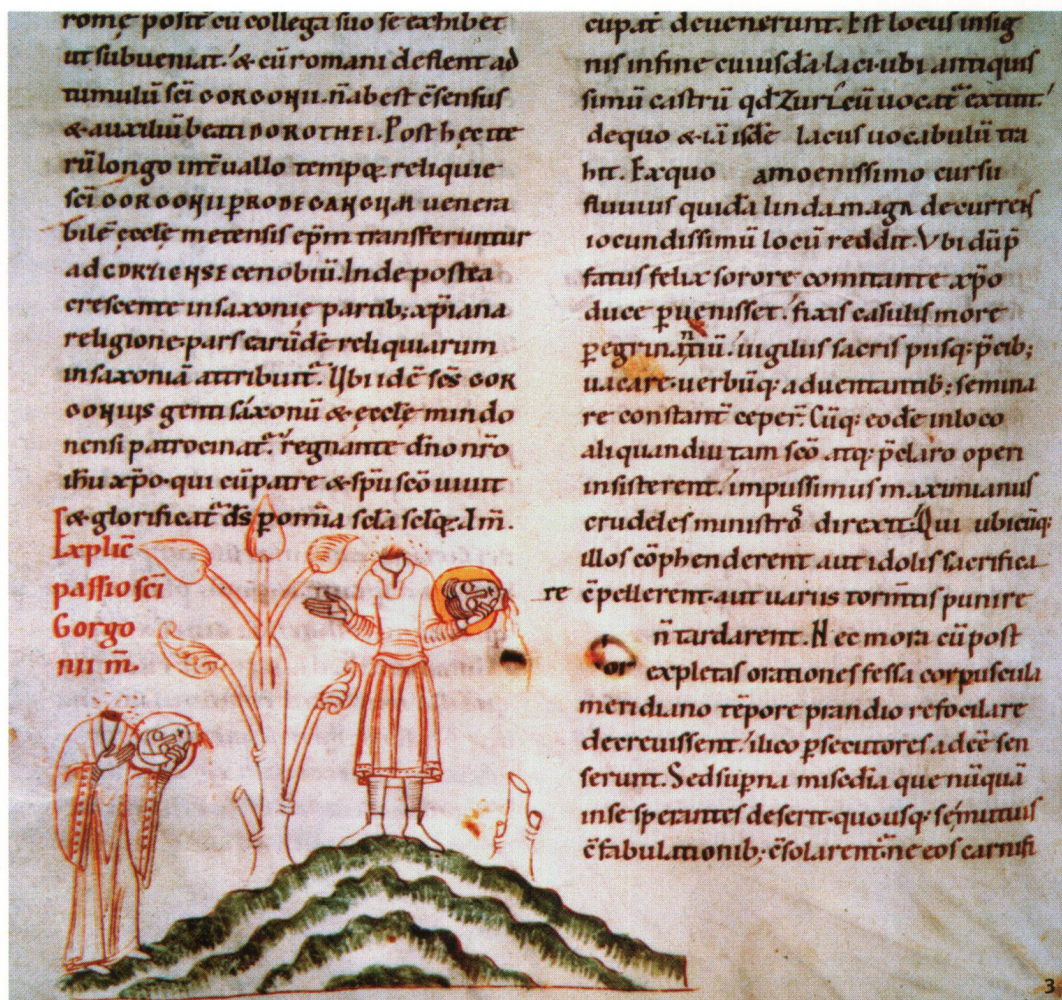 rome posit cū collega suo se exhibet
ut subueniat. & cū romani deflent ad
tumulū sc̄i GORGONII. n̄ abest c̄sensus
& auxiliū beati DOROTHEI. Post hec ite
rū longo int̄uallo tempoꝝ reliquie
sc̄i GORGONII PRODEGANGUM uenera
bilē eccle metensis ep̄m transferuntur
ad GORZIENSE cenobiū. Inde postea
crescente in saxonie partib; xp̄iana
religione pars earūdē reliquiarum
in saxoniā attribuit̄. Ubi idē sc̄s GOR
GONIUS genti saxonū & eccle mindo
nensi patrocinat̄. regnante dn̄o nr̄o
ihu xp̄o. qui cū patre & sp̄u sc̄o uiuit
& glorificat̄ ds̄ p om̄ia sc̄la sc̄loꝝ. Am̄.
Explic̄
passio sc̄i
Gorgo
nii m̄.
cupat̄ deuenerunt. Est locus insig
nis in fine cuiusdā laci. ubi antiquis
simū castrū qd̄ Zuricū uocat̄ extitit.
de quo & iā isdē lacus uocabulū tra
hit. Ex quo amoenissimo cursu
fluuius quidā lindamagn decurrens
iocundissimū locū reddit. Vbi dū p̄
fatus felix sorore comitante xp̄o
duce puenisset. fixis casulis more
pegrinantiū. uigiliis sacris piisq; p̄cib;
uacare. uerbūq; aduentantib; semina
re constant̄ ceper̄. Cūq; eodē in loco
aliquandiu tam sc̄o atq; p̄claro operi
insisterent. impiissimus maximianus
crudeles ministros direxit. Qui ubicūq;
illos cōphenderent aut idolis sacrifica
re c̄pellerent. aut uariis torm̄tis punire
n̄ tardarent. Nec mora cū post
or expletas orationes fessa corpuscula
meridiano tēpore prandio refocilare
decreuissent. ilico psecutores adēē sen
serunt. Sed sup̄na mis̄c̄dia que nūquā
in se sperantes deserit. quousq; se mutuis
c̄fabulationib; c̄solarent̄. ne eos carnifi
3